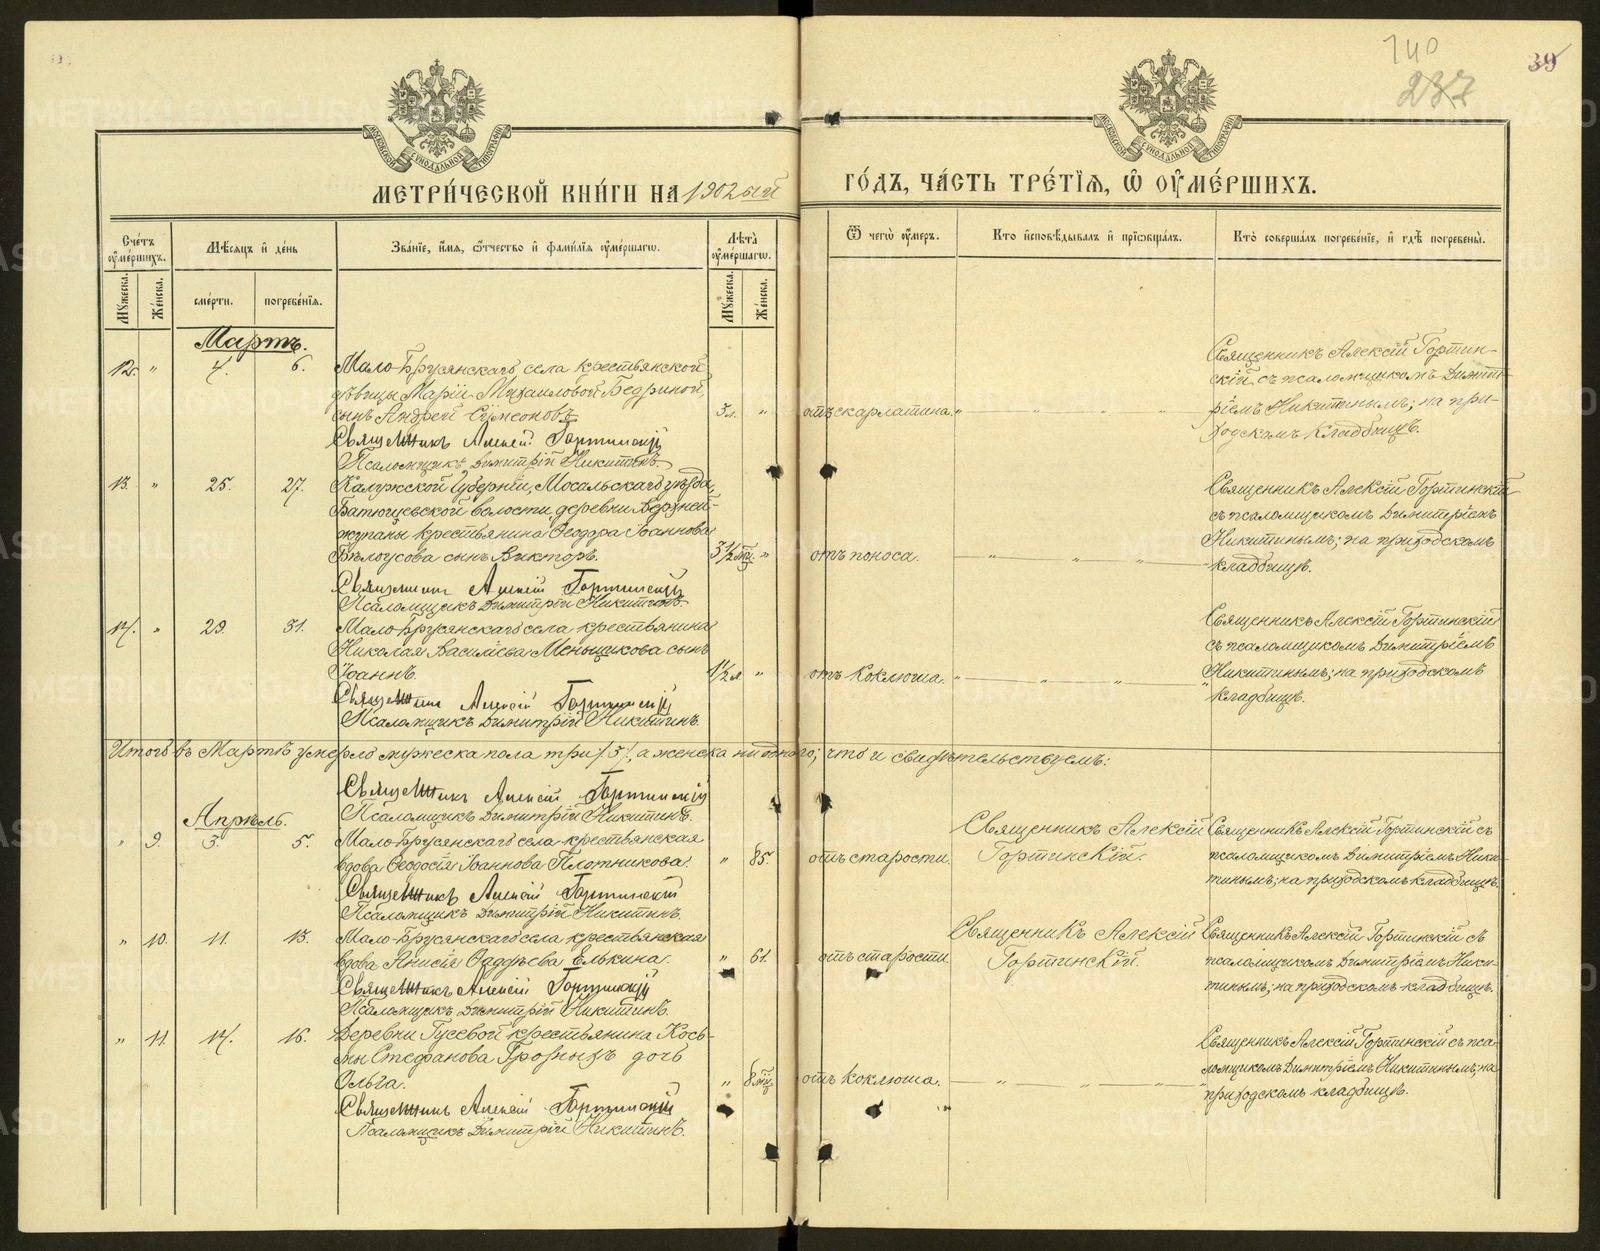 140
237
39
МОСКОВСКОЙ СѴНОДАЛЬНОЙ ТИПОГРАФІИ
МОСКОВСКОЙ СѴНОДАЛЬНОЙ ТИПОГРАФІИ
МЕТРИ́ЧЕСКОЙ КНИ́ГИ НА 1902ый ГО́ДЪ, ЧА́СТЬ ТРЕ́ТІЯ, Ѡ ОУМЕ́РШИХЪ.
Сче́тъ оуме́ршихъ.
Мѣсяцъ и де́нь
Зва́ніе, и́мя, ѻ́тчество и фами́лія оуме́ршагѡ.
Лѣта̀ оуме́ршагѡ.
Ѿ чегѡ̀ оу́меръ.
Кто̀ исповѣ́дывалъ и прїѡбща́лъ.
Кто̀ соверша́лъ погребе́ніе, и гдѣ̀ погребены̀.
Му́жеска.
Же́нска.
сме́рти.
погребе́нія.
Му́жеска.
Же́нска.
Мартъ.
12. " 4. 6. Мало-Брусянскаго села крестьянской
дѣвицы Маріи Михаиловой Бедриной,
сынъ Андрей Сѵмеоновъ 3 л. " отъ скарлатина. " " " "
Священникъ Алексій Гортинскій
Псаломщикъ Димитрій Никитинъ
Священникъ Алексій Гортин-
скій съ псаломщикомъ Димит-
ріемъ Никитинымъ; на при-
ходскомъ кладбищѣ.
13. " 25. 27. Калужской Губерніи, Мосальскаго уѣзда,
деревни Верхней-
крестьянина Ѳеодора Іоаннова
Бѣлоусова сынъ Викторъ. 3½ мц. " отъ поноса. " " "
Священникъ Алексій Гортинскій
Псаломщикъ Димитрій Никитинъ
Священникъ Алексій Гортинскій
съ псаломщикомъ Димитріемъ
Никитинымъ; на приходскомъ
кладбищѣ.
14. " 29. 31. Мало-Брусянскаго села крестьянина
Николая Василіева Меньщикова сынъ
Іоаннъ. 1½ л " отъ коклюша. " " "
Священникъ Алексій Гортинскій
Псаломщикъ Димитрій Никитинъ.
Священникъ Алексій Гортинскій
съ псаломщикомъ Димитріемъ
Никитинымъ; на приходскомъ
кладбищѣ.
Итого въ Мартѣ умерло мужеска пола три /3/, а женска ни одного; что и свидѣтельствуемъ:
Священникъ Алексій Гортинскій
Псаломщикъ Димитрій Никитинъ.
Апрѣль.
" 9. 3. 5. Мало-Брусянскаго села крестьянская
вдова Ѳеодосія Іоаннова Плотникова. " 85. отъ старости.
Священникъ Алексій Гортинскій
Псаломщикъ Димитрій Никитинъ.
Священникъ Алексій
Гортинскій.
Священникъ Алексій Гортинскій съ
псаломщикомъ Димитріемъ Ники-
тинымъ; на приходскомъ кладбищѣ.
" 10. 11. 13. Мало-Брусянскаго села крестьянская
вдова Анисія Ѳаддѣева Елькина. " 61. отъ старости.
Священникъ Алексій Гортинскій
Псаломщикъ Димитрій Никитинъ.
Священникъ Алексій
Гортинскій.
Священникъ Алексій Гортинскій съ
псаломщикомъ Димитріемъ Ники-
тинымъ; на приходскомъ кладбищѣ.
" 11. 14. 16. Деревни Гусевой крестьянина Кось-
мы Стефанова Грозныхъ дочь
Ольга. " 8 мц. отъ коклюша. " " "
Священникъ Алексій Гортинскій
Псаломщикъ Димитрій Никитинъ.
Священникъ Алексій Гортинскій съ пса-
ломщикомъ Димитріемъ Никитинымъ; на
приходскомъ кладбищѣ.